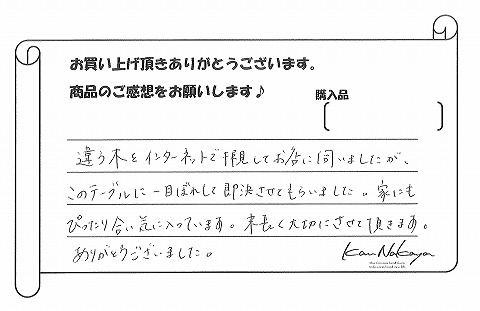 お買い上げ頂きありがとうございます。
商品のご感想をお願いします♪
購入品
違う木とインターネットで拝見してお店に伺いましたが、
このテーブルに一目ぼれして即決させてもらいました。家にも
ぴったり合い気に入っています。末長く大切にさせて頂きます。
ありがとうございました。